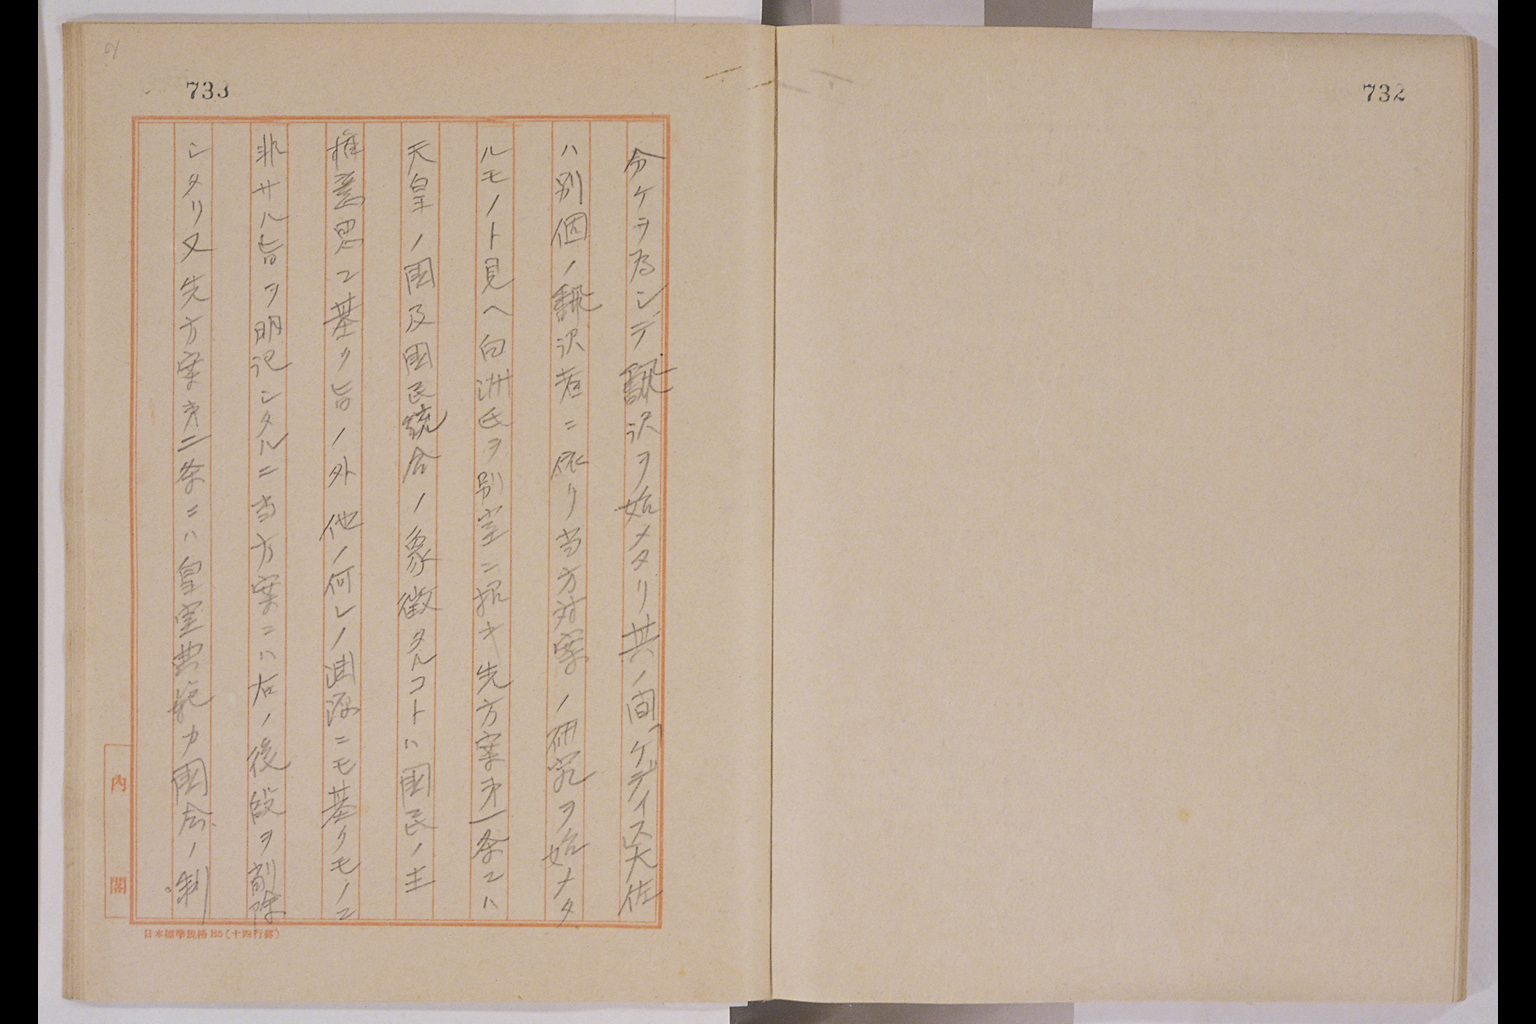 732
733
分ケヲ為シデ飜訳ヲ始メタリ其ノ間「ケディス」大佐
ハ別個ノ飜訳者ニ依リ当方対案ノ研究ヲ始メタ
ルモノト見ヘ白洲氏ヲ別室ニ招キ先方案才一条ニハ
天皇ノ国及国民統合ノ象徴タルコトハ国民ノ主
権意思ニ基ク旨ノ外他ノ何レノ淵源ニモ基クモノニ
非サル旨ヲ明記シタルニ当方案ニハ右ノ後段ヲ削除
シタリ又先方案才二条ニハ皇室典範カ国会ノ制
内閣
日本標準規格B5(十四行罫)